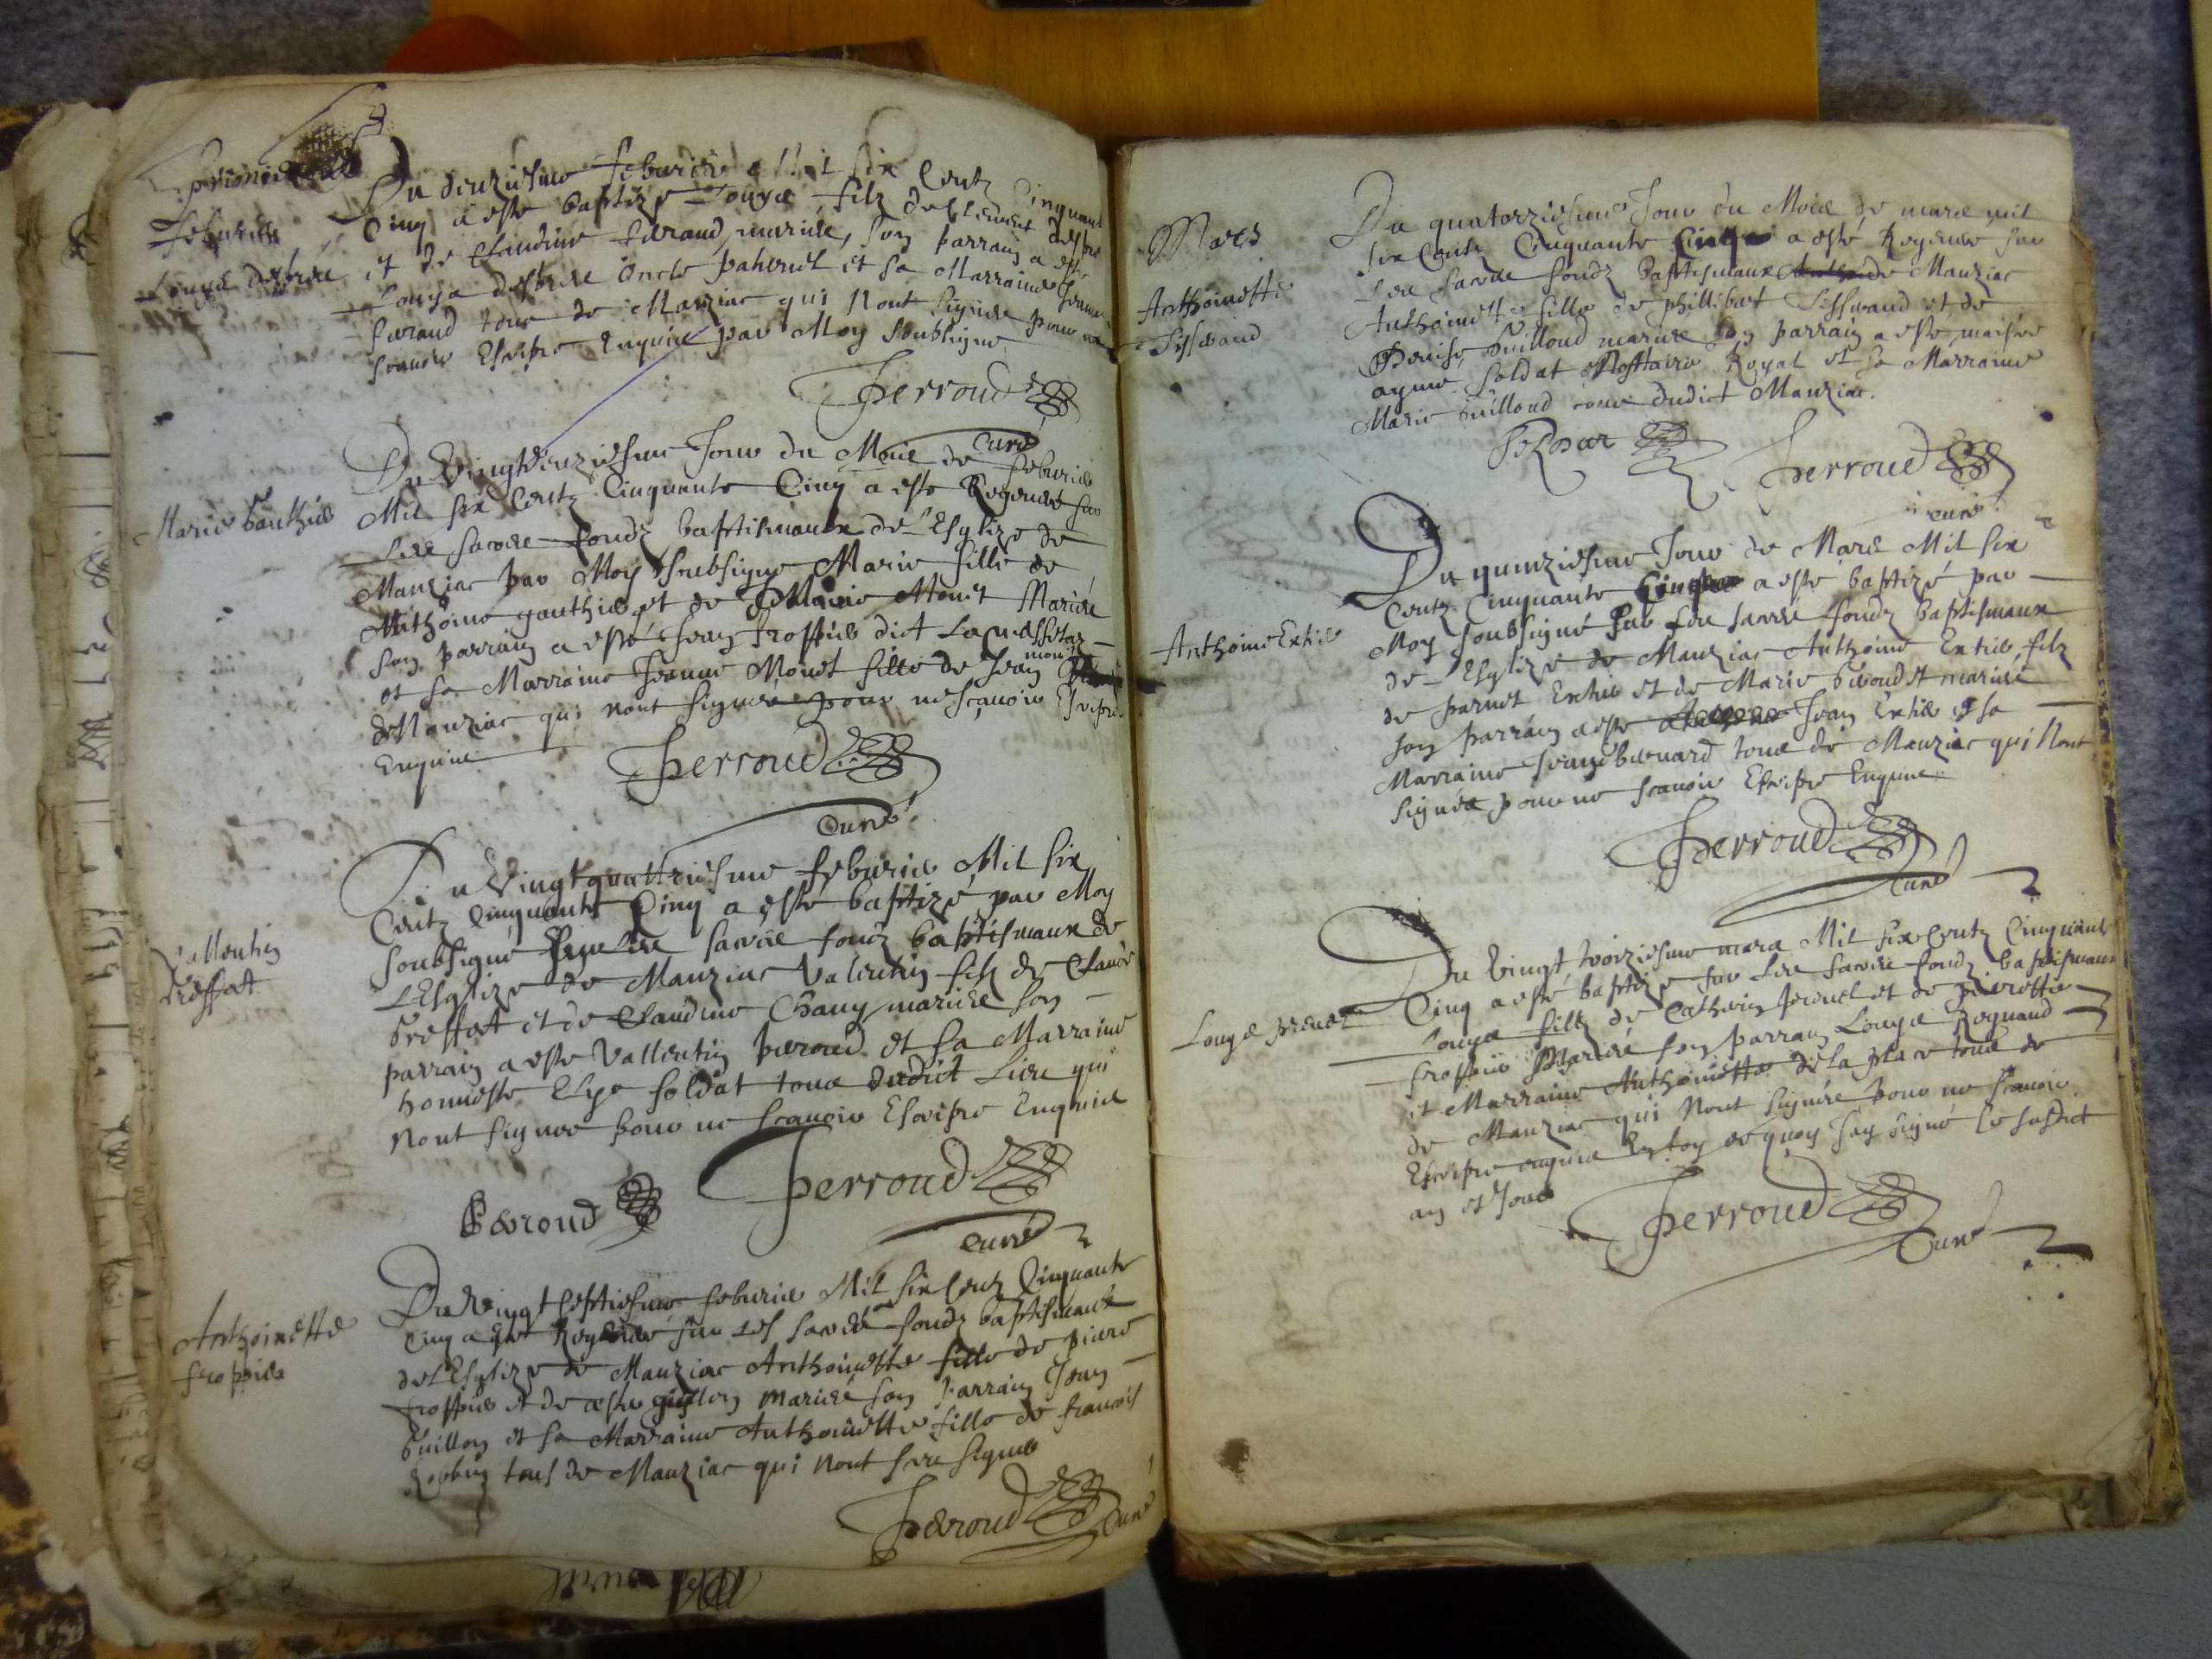 Febvrier
Louys
Du deuziesme febvrier Mil six Centz Cinquante
Cinq a esté baptizé Louys filz de Clement
et de Claudine mariés, son parrain a esté
Louys oncle paternel et sa Marraine Jeanne
tous de Manziac qui nont signés pour ne
scavoir Escripre Enquis par Moy soubsigné
Perroud
curé
Marie Gauthier
Du Vingtdeuziesme Jour du Mois de febvrier
Mil six Centz Cinquante Cinq a esté Regeneré sur
Les sacrés fondz baptismaux de L'Esglize de
Manziac par Moy subsigné Marie fille de
Anthoine gauthier et de Monet Mariés
son parrain a esté Jean froppier dict
et sa Marraine Jeanne Monet fille de Jean monet
de Manziac qui nont signés pour ne scavoir Escripre
Enquis
Perroud
curé
Vallentin
Greffet
Du Vingt quattriesme febvrier Mil six
Centz Cinquante Cinq a esté baptizé par Moy
soubsigné sur Les sacrés fondz baptismaux de
L'Esglize de Manziac Valentin filz de Claude
Greffet et de Claudine Chany mariés son
parrain a esté Vallentin Perroud et sa Marraine
honneste soldat tous dudict Lieu qui
Nont signés pour ne scavoir Escripre Enquis
Perroud
Perroud
curé
Anthoinette
froppier
Du Vingt septiesme febvrier Mil six Centz Cinquante
Cinq a esté Regeneré sur Les sacrés fondz baptismaux
de L'Esglize de Manziac Anthoinette fille de Piere
froppier et de guillon Mariés son Parrain Jean
Guillon et sa Marraine Anthoinette fille de francois
Robbin tous de Manziac qui Nont sceu signer
Perroud
Curé
Mars
Anthoinette
Du quatorziesme Jour du Mois de mars mil
six Centz Cinquante Cinq a esté Regeneré sur
Les sacrés fondz Baptismaux de Manziac
Anthoinette fille de Phillibert et de
Denise Guilloud mariés son parrain a esté maistre
ayme Soldat Nottaire Royal et sa Marraine
Marie Guilloud tous dudict Manziac.
Perroud
curé
Anthoine Extier
Du quinziesme Jour de Mars Mil six
Centz Cinquante Cinq a esté baptizé par
Moy soubsigné sur Les sacrés fondz baptismaux
de L'Esglize de Manziac Anthoine Extier filz
de Extier et de Marie mariés
son parrain a esté Jean Extier et sa
Marraine tous de Manziac qui Nont
signés pour ne scavoir Escripre Enquis
Perroud
Curé
Louys
Du Vingt troiziesme mars Mil six Centz Cinquante
Cinq a esté baptizé sur Les sacrés fondz baptismaux
Louys filz de Catherin et de Pierrette
froppier Mariés son parrain Louys Reynaud
et Marraine Anthoinette de La place tous de
de Manziac qui Nont signés pour ne scavoir
Escripre enquis En foy de quoy Jay signé Le susdict
an et Jour
Perroud
Curé